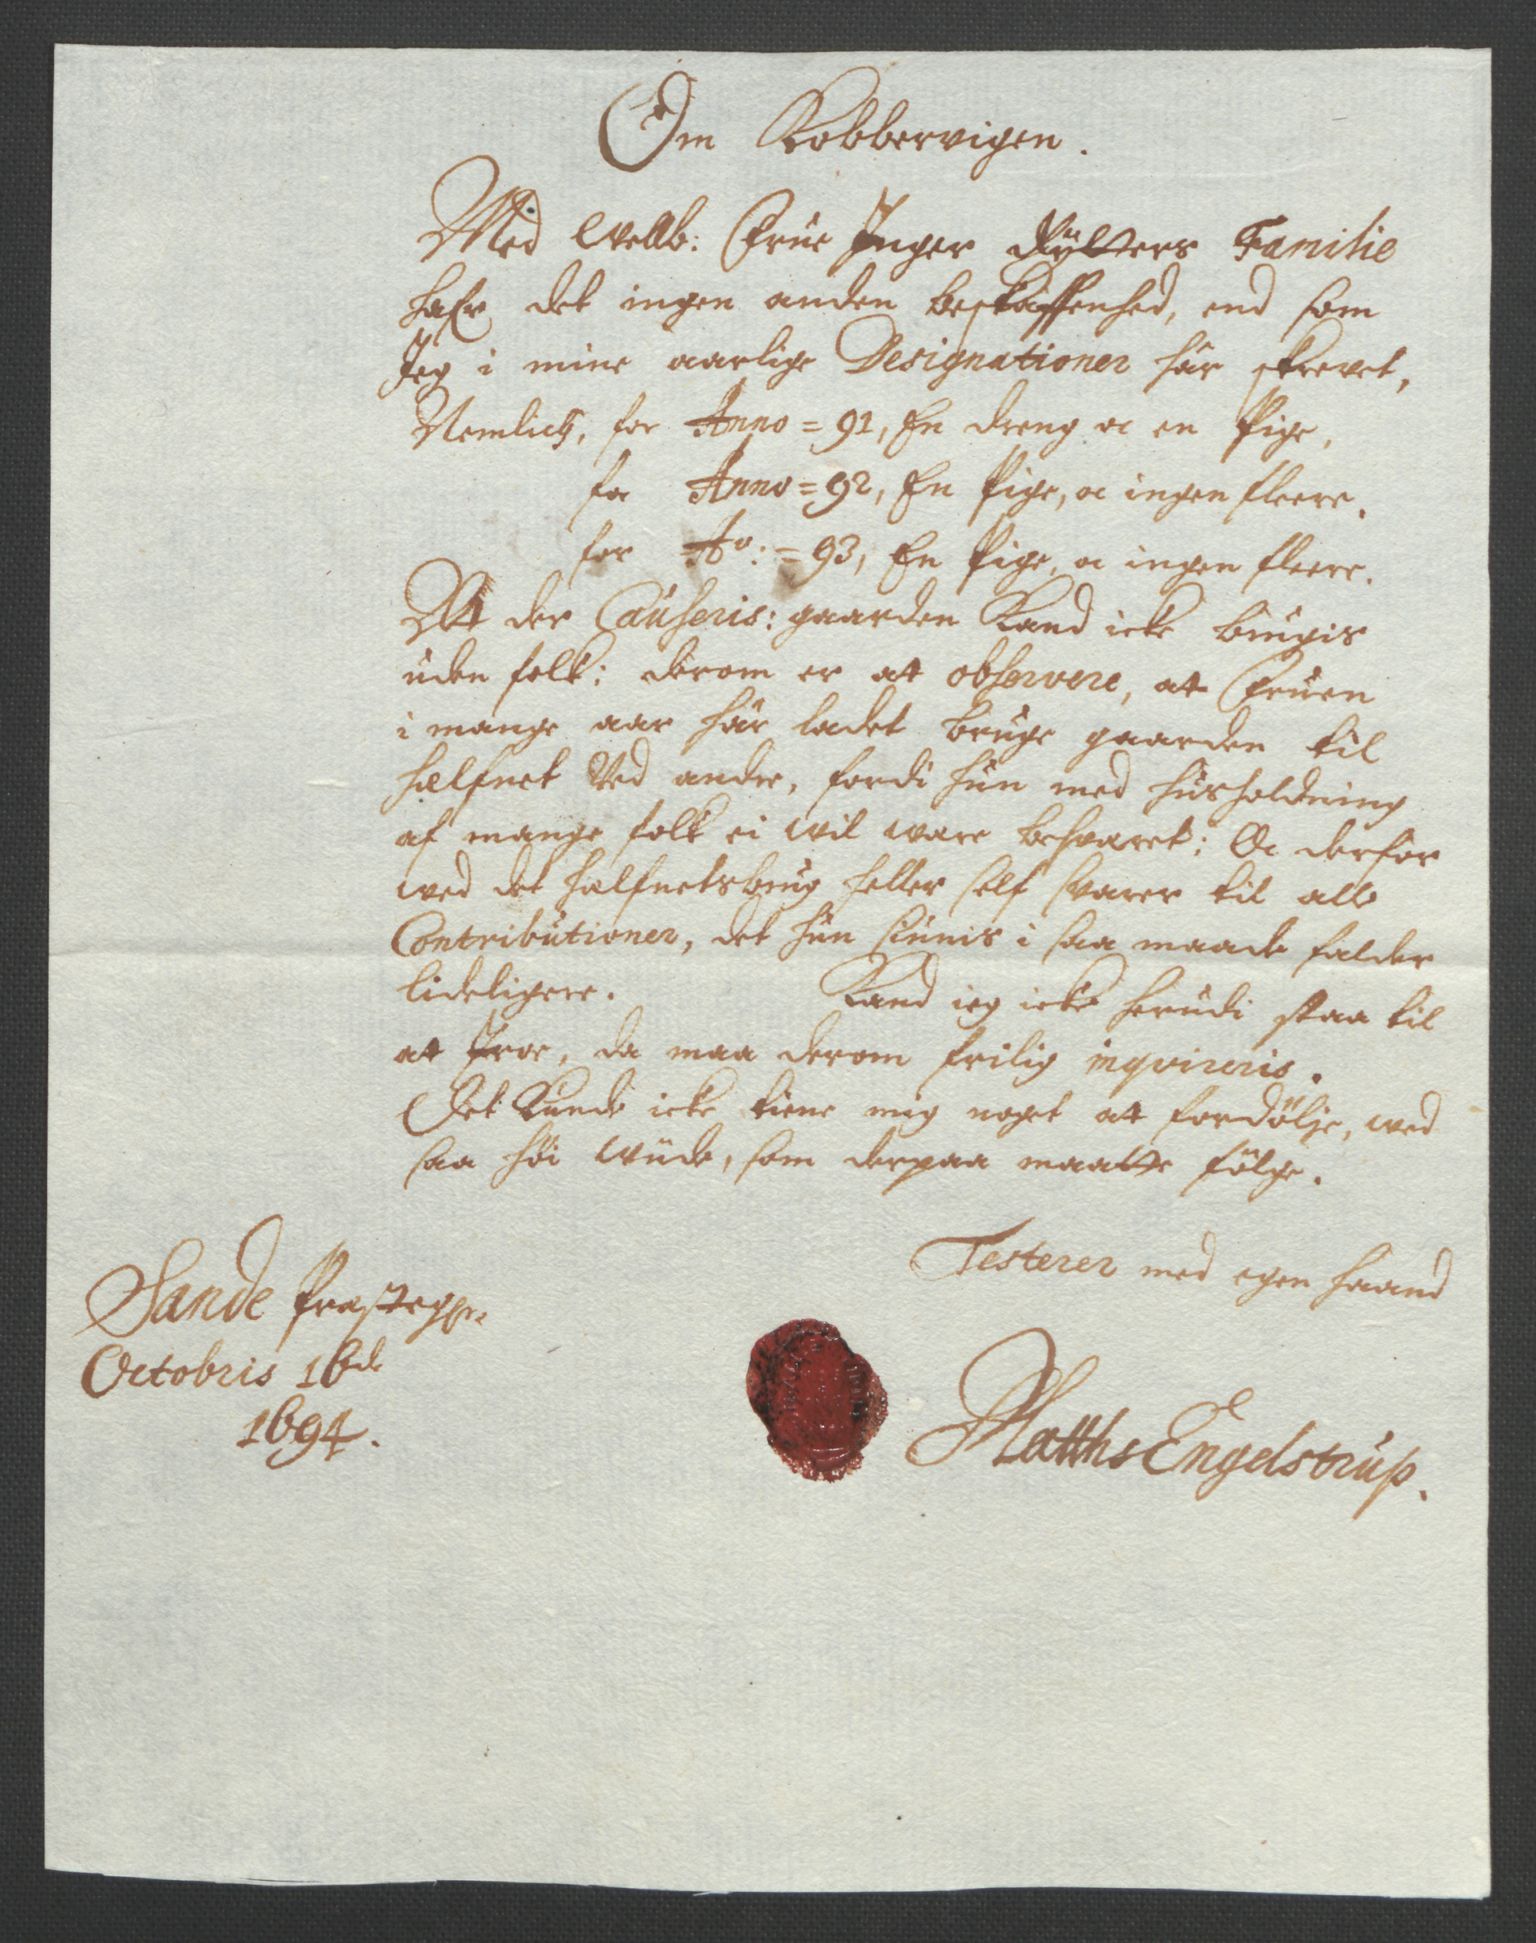 Om Kobbervigen.
Med Welb: Frue Inger Rytters Familie
hafr det ingen anden beskaffenhed, end som
Jeg i mine aarlige Designationer här skrevet,
Nemlich, for Anno = 91, En dreng oc en Pige,
for Anno = 92, En Pige, oc ingen fleere.
for Ao: = 93, En Pige, oc ingen fleere.
At der Causeris: gaarden Kand icke brugis
uden folk: derom er at observere, at Fruen
i mange aar här ladet bruge gaarden til
halfnet Ved andre, fordi hun med husholdning
af mange folk ei wil ware besvaret; Oc derfor
wed det halfnetsbrug heller self svarer til alle
Contributioner, det hun siunis i saa maade falder
lideligere. Kand ieg icke herudi staa til
at troe, da maa derom frilig inqvireris.
Det Kunde icke tiene mig noget at fordølje, wed
saa høi wüde, som derpaa maatte følge.
Testerer med egen haand
Sande Præstegr
Octobris 16de
1694.
Matths Engelstrup.